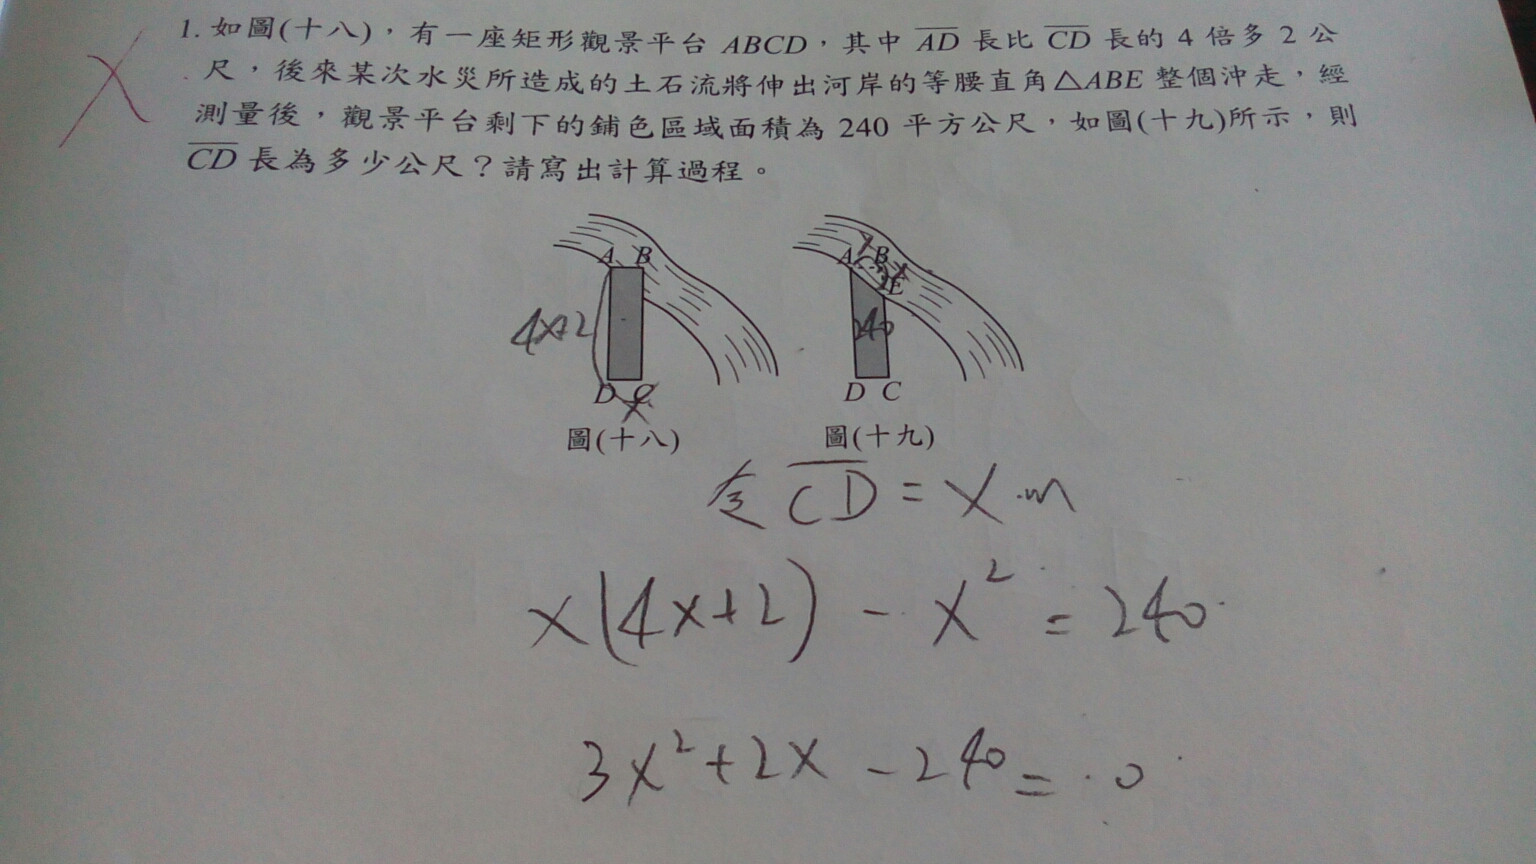 1. 如圖(十八)，有一座矩形觀景平台 ABCD，其中 AD 長比 CD 長的 4 倍多 2 公
尺，後來某次水災所造成的土石流將伸出河岸的等腰直角△ABE 整個沖走，經
測量後，觀景平台剩下的鋪色區域面積為 240 平方公尺，如圖(十九)所示，則
CD 長為多少公尺？請寫出計算過程。
A B
4x+2
D C
x
圖(十八)
x
A B x
E
240
D C
圖(十九)
令 CD = x m
x(4x+2) - x² = 240
3x² + 2x - 240 = 0